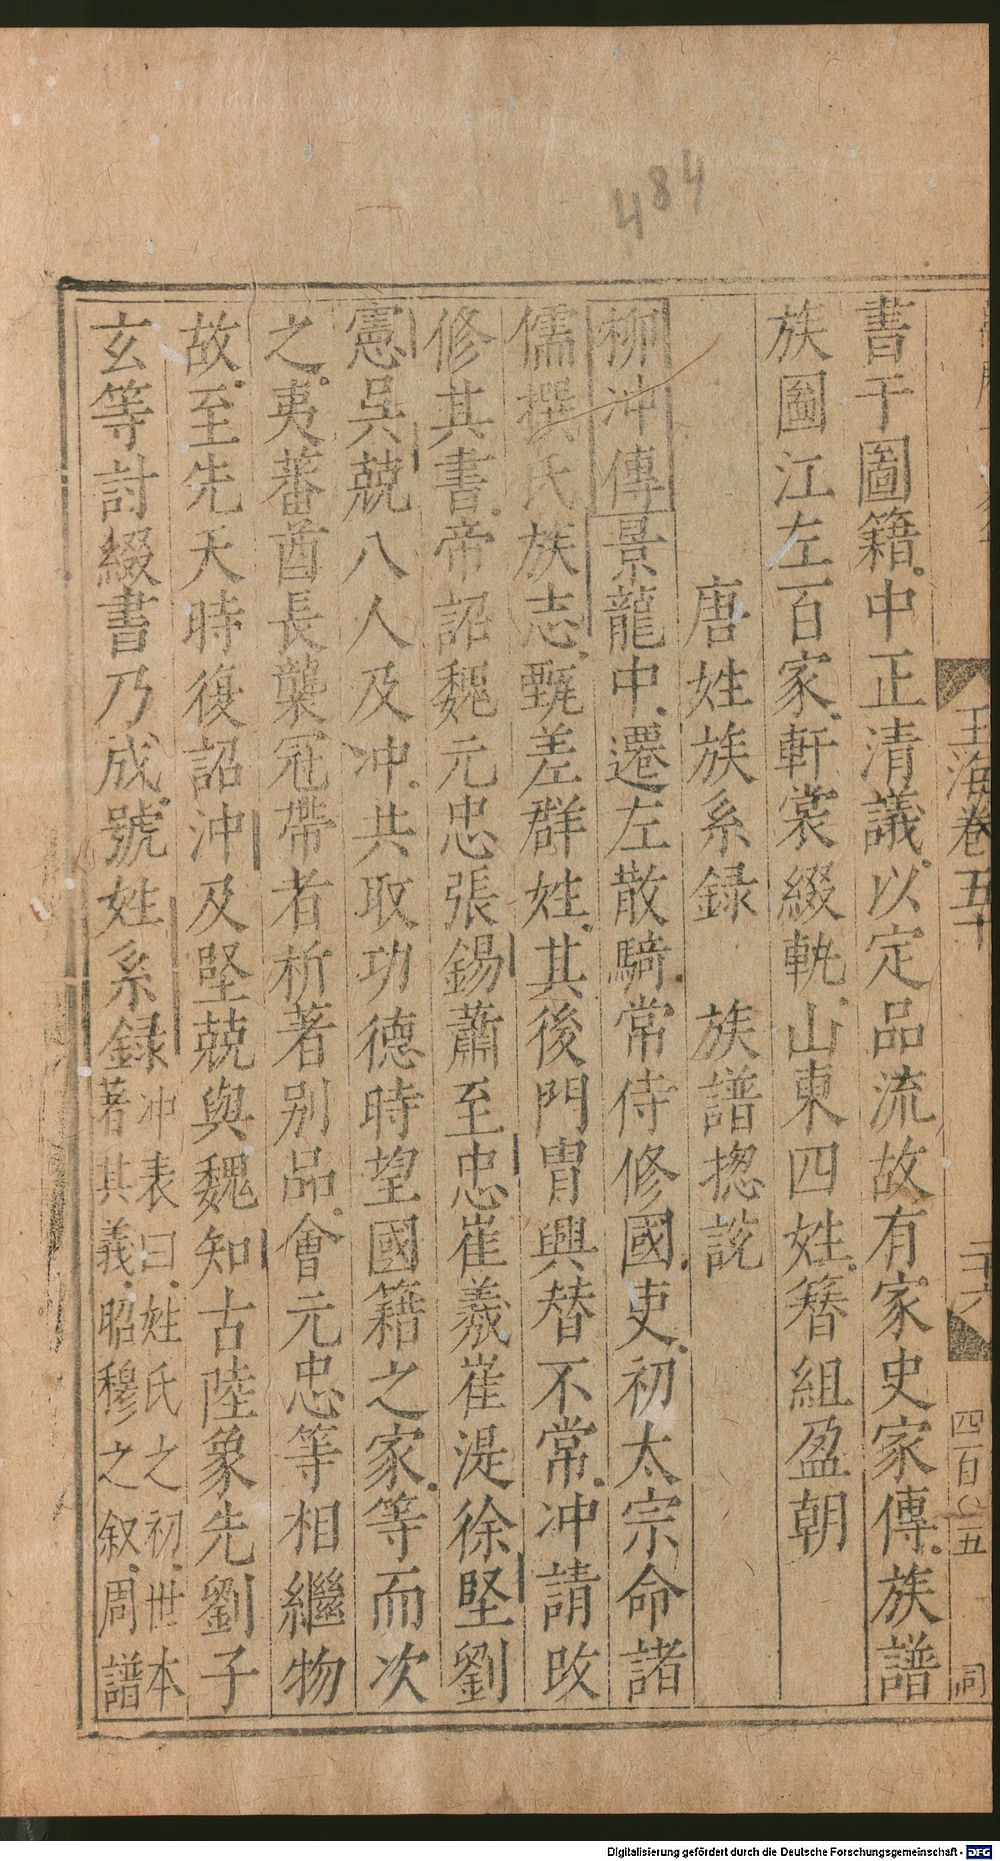 484
玉海卷五十
二十六
四百〇五
書于圖籍中正清議以定品流故有家史家傳族譜
族圖江左百家軒裳綴軌山東四姓簪組盈朝
唐姓族系録　族譜揔說
柳沖傳景龍中遷左散騎常侍修國史初太宗命諸
儒撰氏族志甄差群姓其後門胄興替不常冲請改
修其書帝詔魏元忠張錫蕭至忠崔義崔湜徐堅劉
憲吳兢八人及冲共取功德時望國籍之家等而次
之夷蕃酋長襲冠帶者析著别品會元忠等相繼物
故至先天時復詔沖及堅兢與魏知古陸象先劉子
玄等討綴書乃成號姓系録冲表曰姓氏之初世本
著其義昭穆之叙周譜
Digitalisierung gefördert durch die Deutsche Forschungsgemeinschaft - DFG